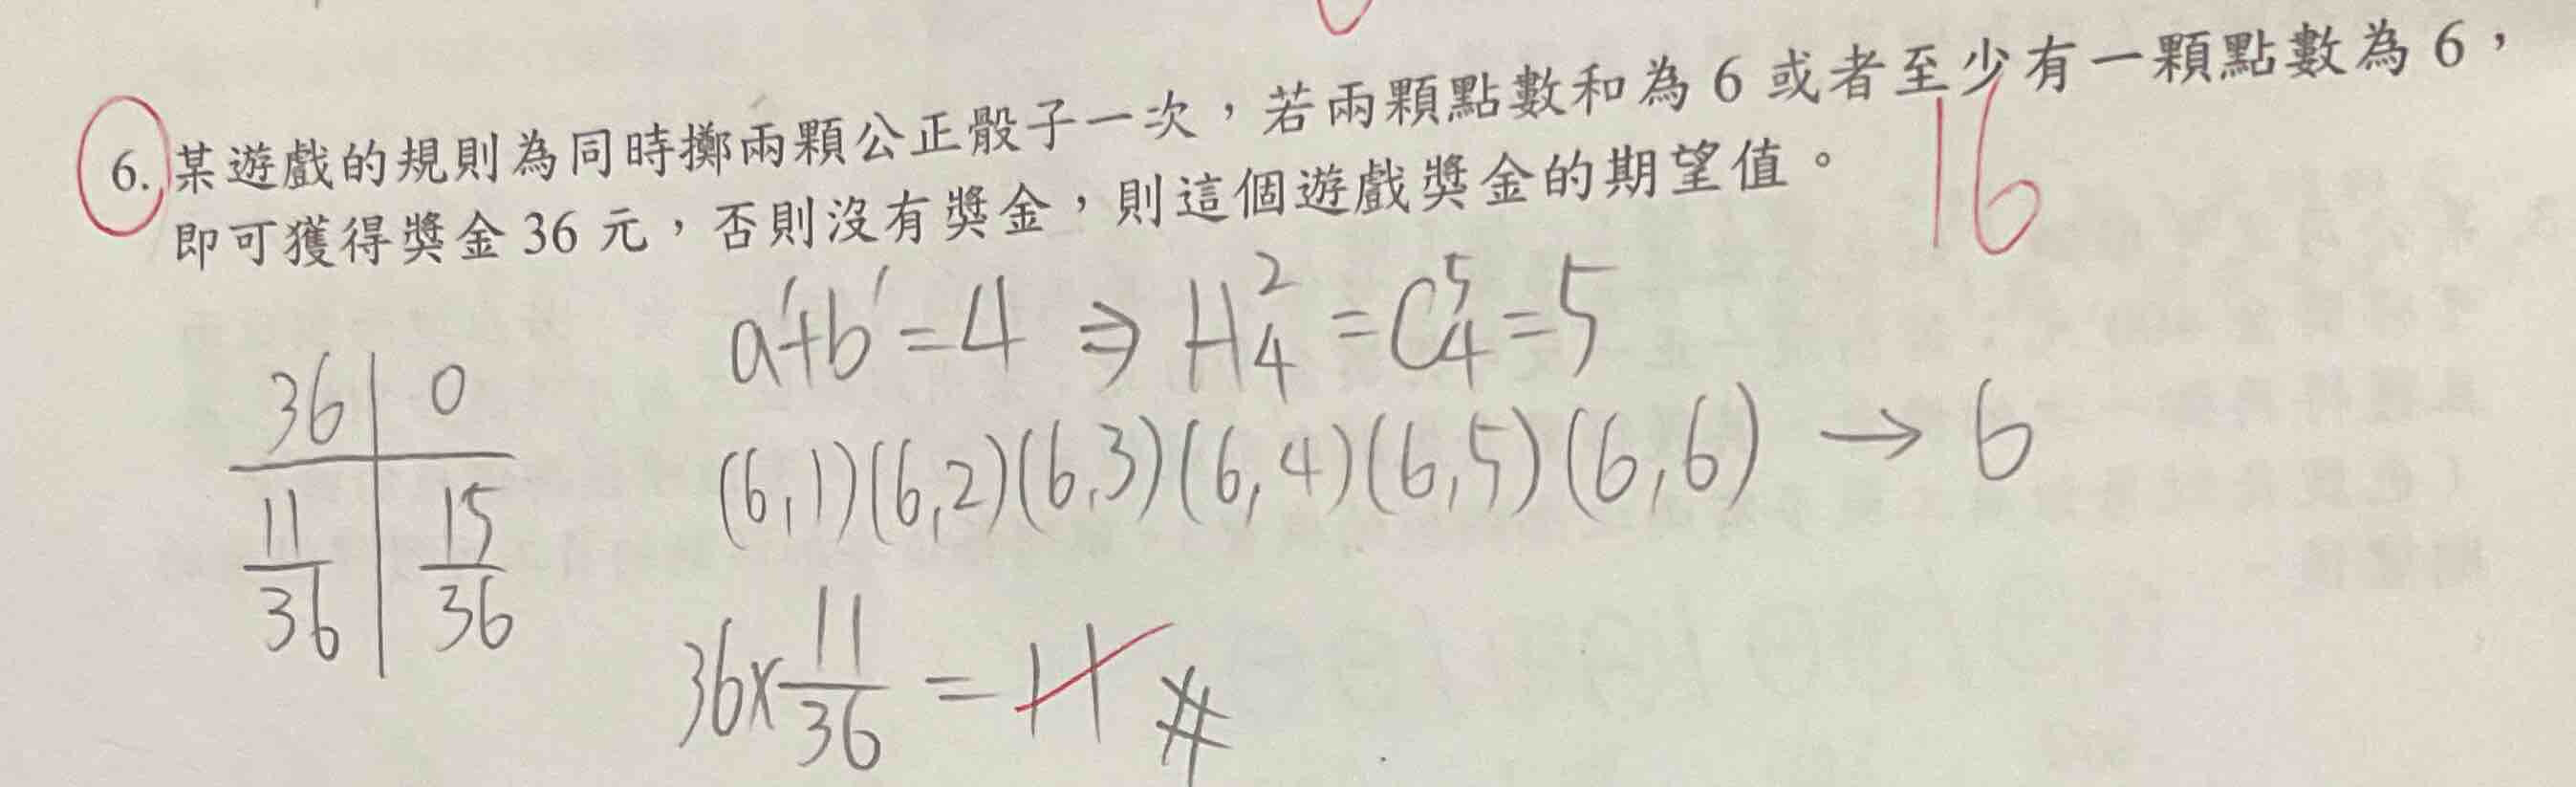 6. 某遊戲的規則為同時擲兩顆公正骰子一次，若兩顆點數和為 6 或者至少有一顆點數為 6，
即可獲得獎金 36 元，否則沒有獎金，則這個遊戲獎金的期望值。
16
a'+b'=4 ⇒ H²₄ = C⁵₄ = 5
36 | 0
11/36 | 15/36
(6,1)(6,2)(6,3)(6,4)(6,5)(6,6) → 6
36×11/36 = 11 #